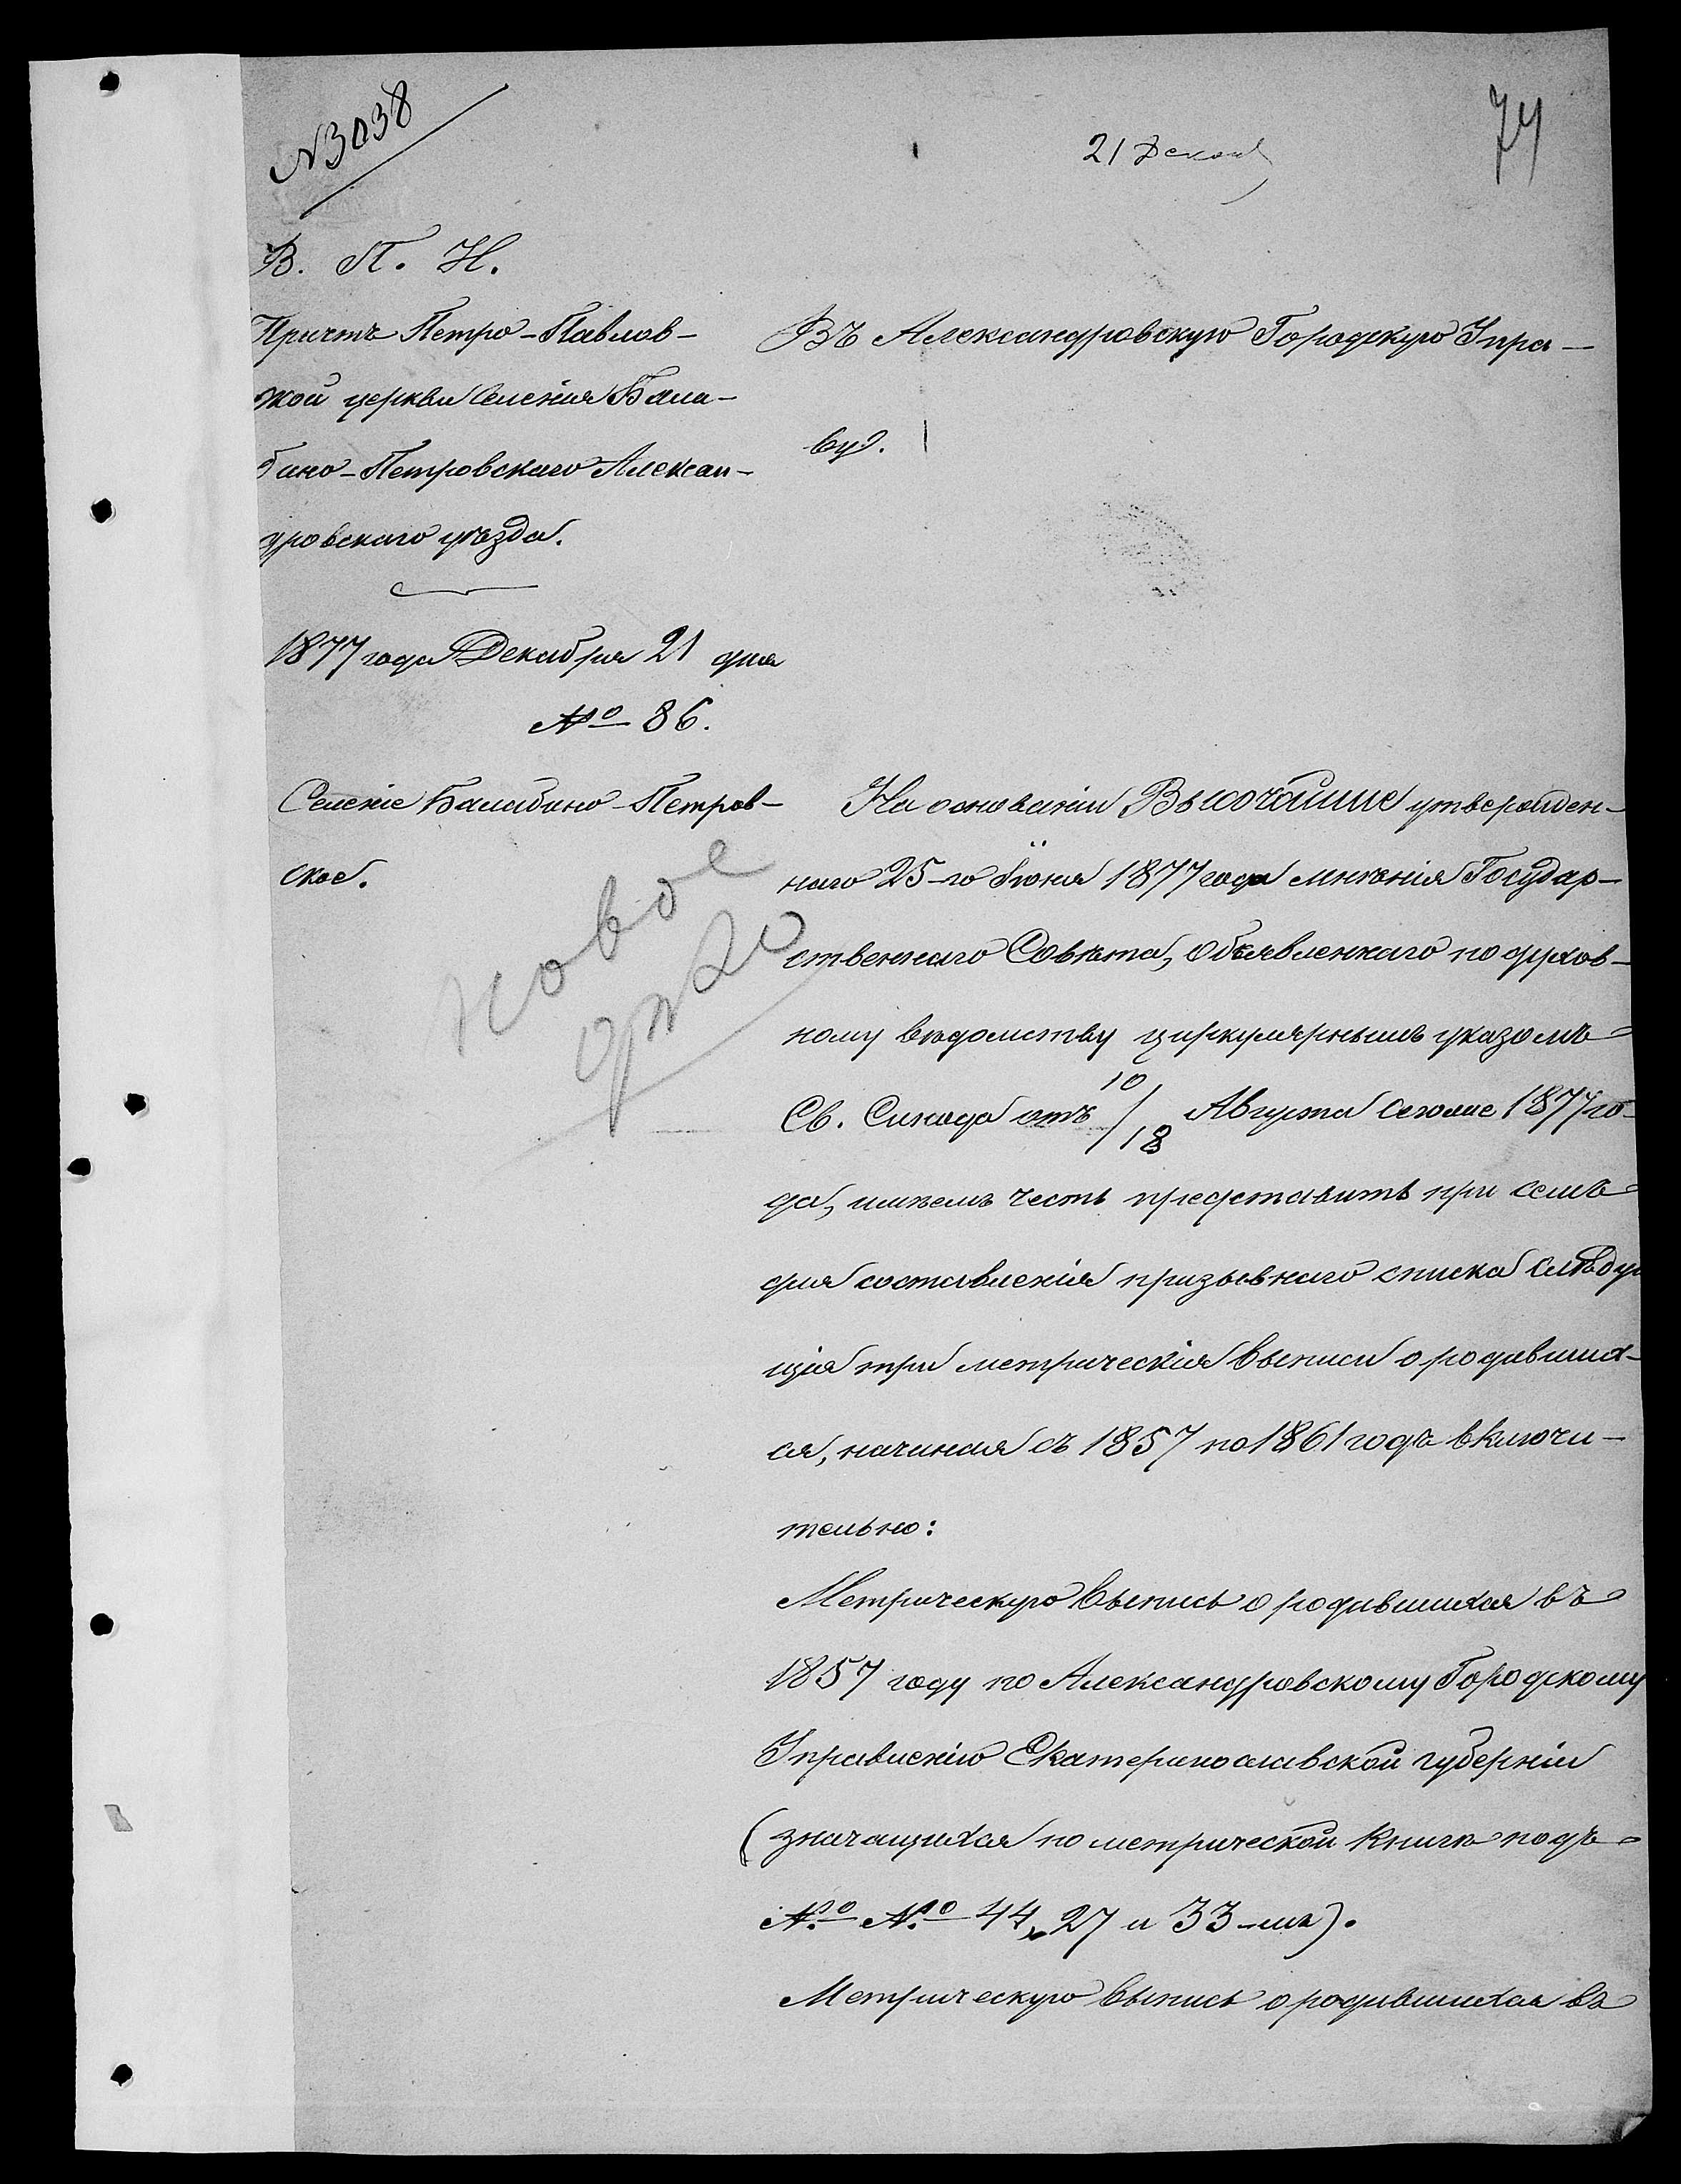 №3038
21 Декаб
74
В. П. И.
Причтъ Петро-Павлов-
ской церкви Селенія Бала-
бино-Петровскаго Алексан-
дровскаго уѣзда.
1877 года Декабря 21 дня
№ 86.
Селеніе Балабино-Петров-
ское.
Новое
Въ Александровскую Городскую Упра-
ву.
На основаніи Высочайше утвержден-
наго 25-го Іюня 1877 года мнѣнія Государ-
ственнаго Совѣта, объявленнаго по духов-
ному вѣдомству циркулярнымъ указомъ
Св. Синода отъ 10/18 Августа сего же 1877 го-
да, имѣемъ честь представить при семъ
для составленія призывнаго списка слѣдую
щія три метрическія выписи о родивших-
ся, начиная съ 1857 по 1861 годъ включи-
тельно:
Метрическую выпись о родившихся въ
1857 году по Александровскому Городскому
Управленію Екатеринославской губерніи
(значащихся по метрической книгѣ подъ
№ № 44, 27 и 33-мъ).
Метрическую выпись о родившихся въ